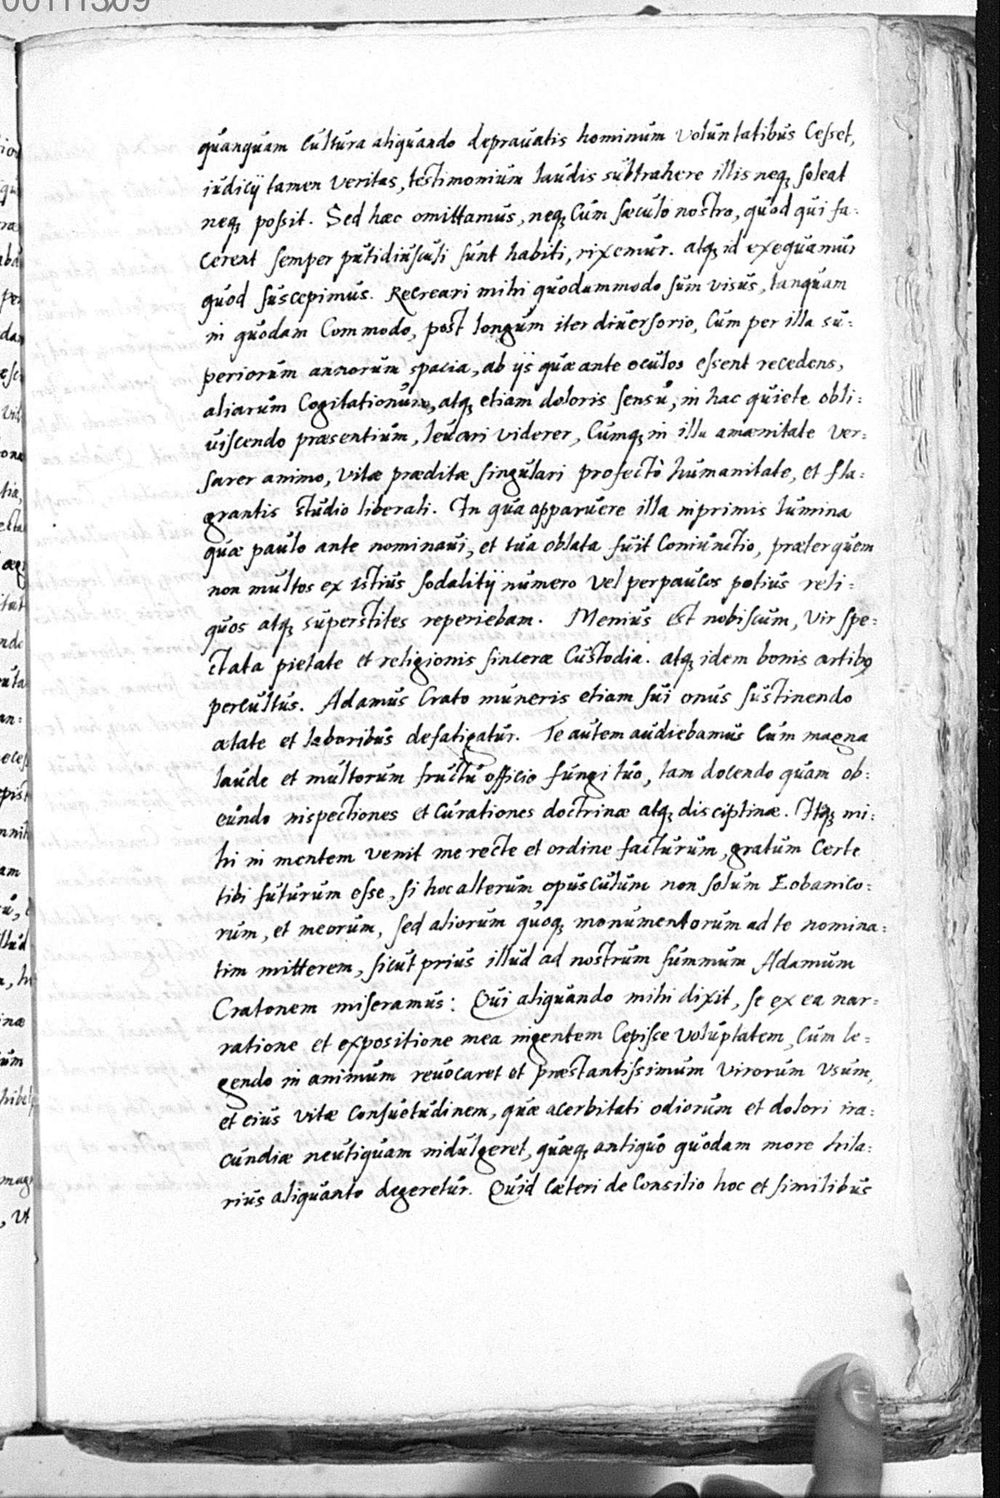 00111309
quanquam cultura aliquando deprauatis hominum voluntatibus cesset,
iudicij tamen veritas, testimonium laudis subtrahere illis neq; soleat
neq; possit. Sed hæc omittamus, neq; cum sæculo nostro, quod qui fa:
cerent semper putidiusculi sunt habiti, rixemur. atq; id exequamur
quod suscepimus. Recreari mihi quodammodo sum visus, tanquam
in quodam commodo, post longum iter diuersorio, cum per illa su:
periorum annorum spacia, ab ijs quæ ante oculos essent recedens,
aliarum cogitationum, atq; etiam doloris sensu, in hac quiete obli:
uiscendo præsentium, leuari viderer, cumq; in illa amænitate ver:
sarer animo, vitæ præditæ singulari profectò humanitate, et fla:
grantis studio liberali. In qua apparuere illa inprimis lumina
quæ paulo ante nominaui, et tua oblata fuit coniunctio, præter quem
non multos ex istius sodalitij numero vel perpaucos potius reli:
quos atq; superstites reperiebam. Menius est nobiscum, vir spe:
ctata pietate et religionis sinceræ custodia. atq; idem bonis artibꝰ
percultus. Adamus Crato muneris etiam sui onus sustinendo
ætate et laboribus defatigatur. Te autem audiebamus cum magna
laude et multorum fructu officio fungi tuo, tam docendo quam ob:
eundo inspectiones et curationes doctrinæ atq; disciplinæ. Itaq; mi:
hi in mentem venit me recte et ordine facturum, gratum certe
tibi futurum esse, si hoc alterum opusculum non solum Eobanico:
rum, et meorum, sed aliorum quoq; monumentorum ad te nomina:
tim mitterem, sicut prius illud ad nostrum summum Adamum
Cratonem miseramus: Qui aliquando mihi dixit, se ex ea nar:
ratione et expositione mea ingentem cepisse voluptatem, cum le:
gendo in animum reuocaret et præstantissimum virorum vsum,
et eius vitæ consuetudinem, quæ acerbitati odiorum et dolori ira:
cundiæ neutiquam indulgeret, quæq; antiquo quodam more hila:
rius aliquanto degeretur. Quid cæteri de consilio hoc et similibus